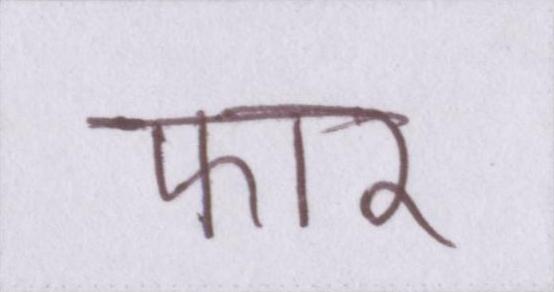 फार